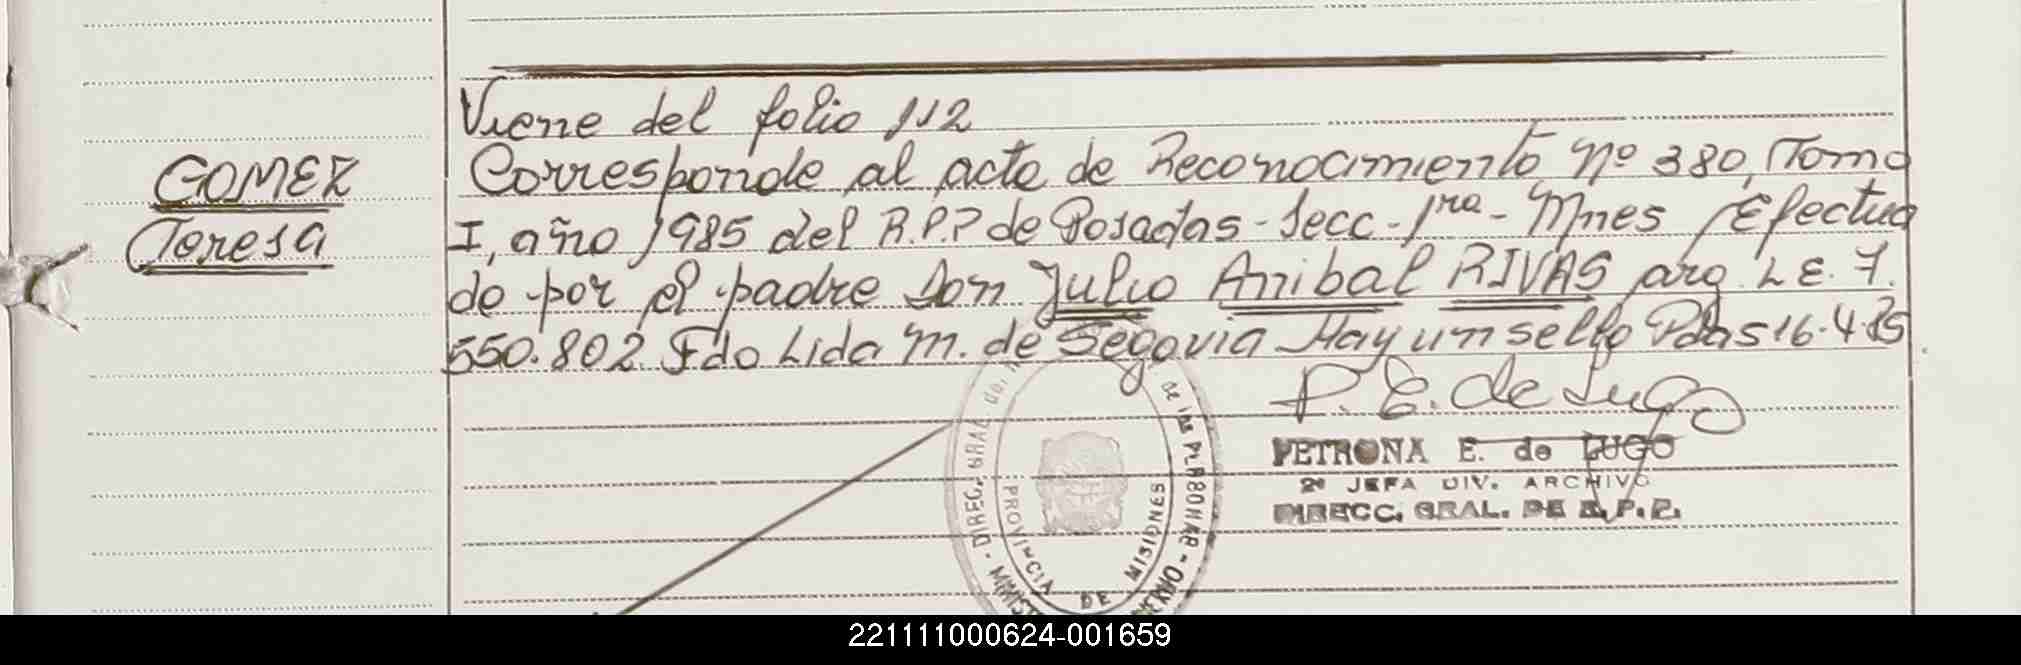 Viene del folio 112
GOMEZ
Teresa
Corresponde al acta de Reconocimiento Nº 380, Tomo
I, año 1985 del R.P.P de Posadas - Secc - 1ra - Mnes Efectua
do por el padre Don Julio Anibal RIVAS arg. L E. 7.
550.802. Fdo Lida M. de Segovia Hay un sello Pdas 16-4-85
P. E. de Lugo
PETRONA E. de LUGO
2ª JEFA DIV. ARCHIVO
DIRECC. GRAL. DE R.P.P.
DIREC. GRAL. de las PERSONAS
PROVINCIA DE MISIONES
221111000624-001659